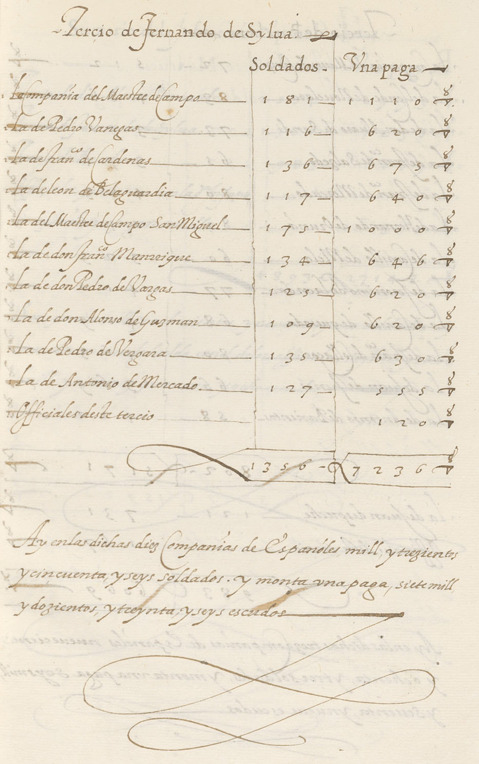 Tercio de Fernando de Sylva
Soldados Vna paga
La Compañia del Maestre de Campo 181 1110
La de Pedro Vanegas 116 620
La de fran.co de Cardenas 136 675
La de leon de Belaguardia 117 640
La del Maestre de Campo San Miguel 175 1000
La de don fran.co Manrrique 134 646
La de don Pedro de Vargas 125 620
La de don Alonso de Guzman 109 620
La de Pedro de Vergara 135 630
La de Antonio de Mercado 127 555
Officiales deste tercio 120
1356 7236
Ay en las dichas diez Companias de Españoles mill, y trezientos
y cincuenta, y seys soldados. y monta vna paga, siete mill
y dozientos, y treynta, y seys escudos